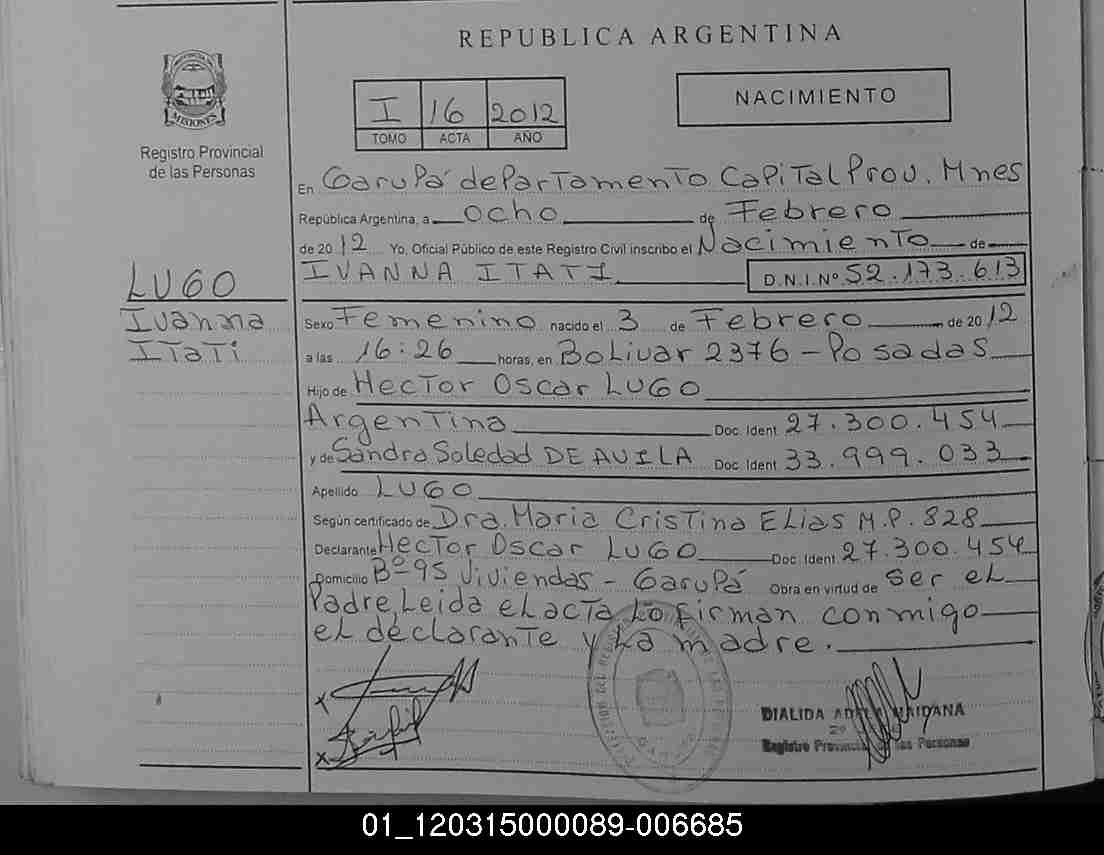 REPUBLICA ARGENTINA
MISIONES
Registro Provincial
de las Personas
I 16 2012
TOMO ACTA AÑO
NACIMIENTO
En Garupá departamento Capital Prov. Mnes
República Argentina, a ocho de Febrero
de 2012 Yo, Oficial Público de este Registro Civil inscribo el Nacimiento de
IVANNA ITATI D.N.I.Nº 52.173.613
LUGO
Ivanna
Itati
Sexo Femenino nacido el 3 de Febrero de 2012
a las 16:26 horas, en Bolivar 2376 - Posadas
Hijo de Hector Oscar LUGO
Argentina Doc. Ident. 27.300.454
y de Sandra Soledad DE AVILA Doc. Ident. 33.999.033
Apellido LUGO
Según certificado de Dra. Maria Cristina Elias M.P. 828
Declarante Hector Oscar LUGO Doc. Ident. 27.300.454
Domicilio Bº 95 Viviendas - Garupá Obra en virtud de ser el
Padre, Leida el acta lo firman conmigo
el declarante y la madre.
DIALIDA MAIDANA
Registro las Personas
01_120315000089-006685